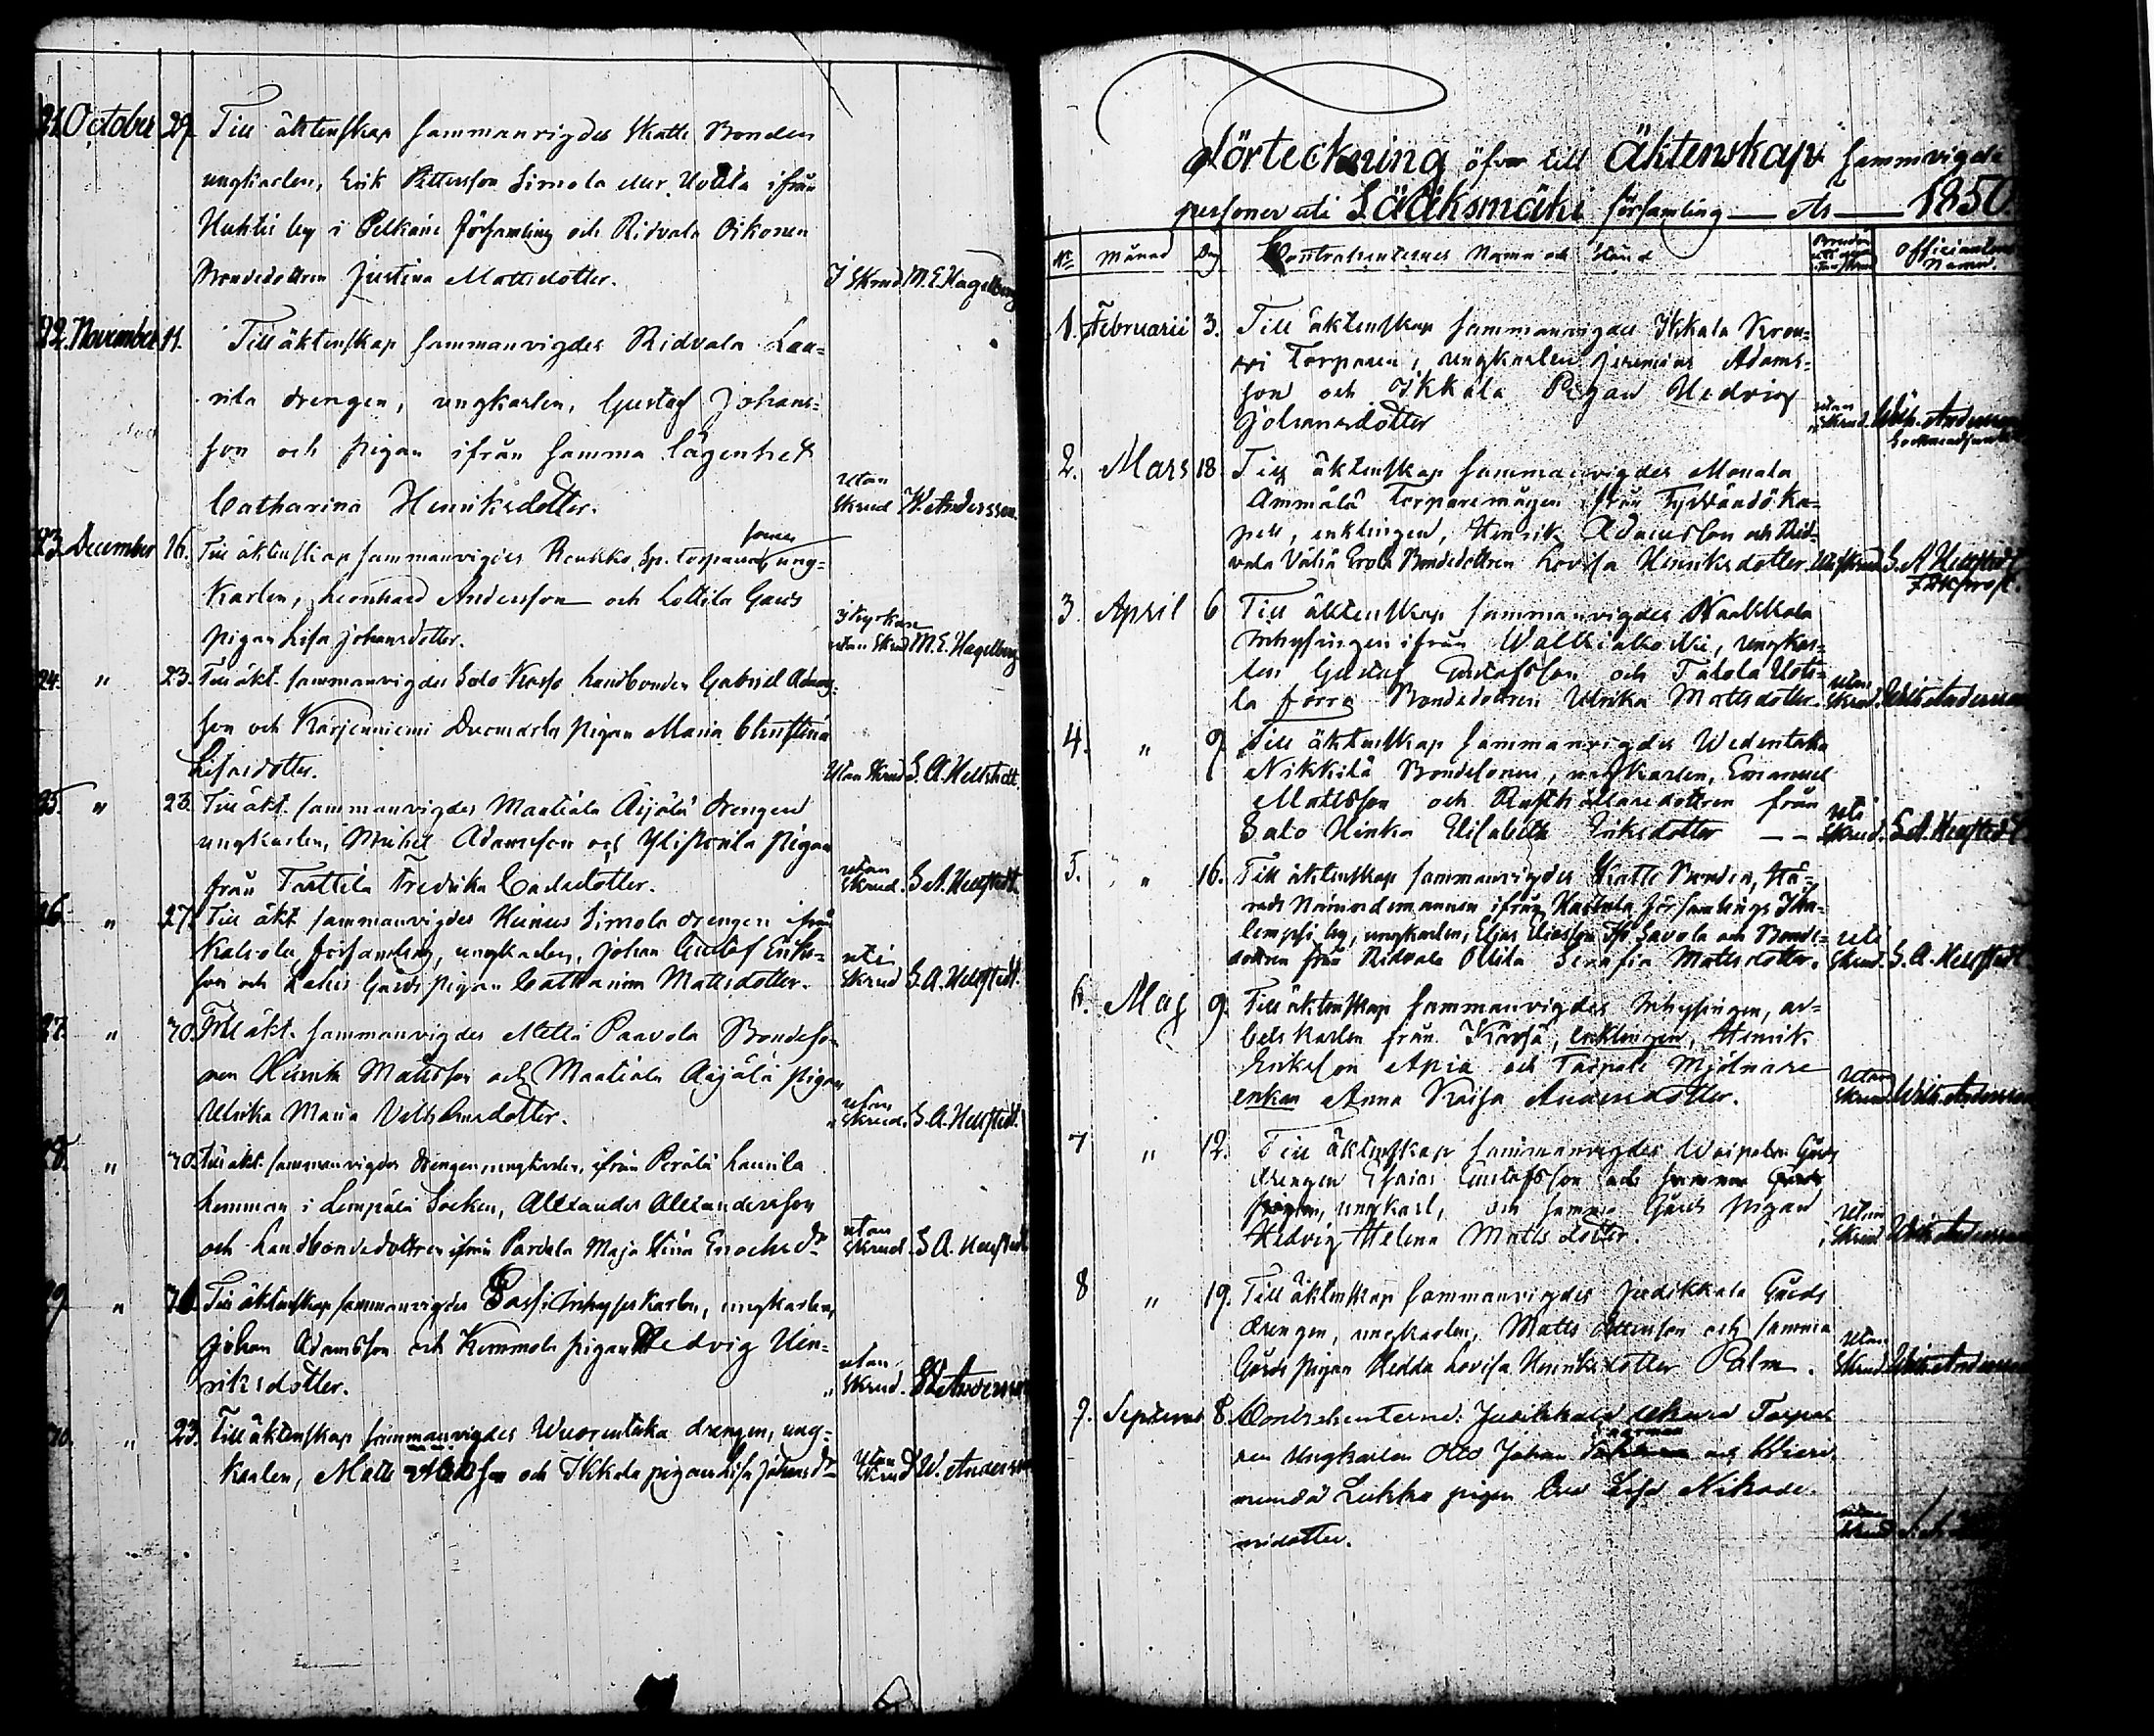 21. October 29. Till äktenskap sammanvigdes Skatte Bonden
ungkarlen, Erik Pettersson Simola eller Uotila ifrån
Huhtis by i Pelkäne församling och Ridvala Oikonen
Bondedottren Justina Mattsdotter. I Skrud M. E. Hagelberg
22. November 11. Till äktenskap sammanvigdes Ridvala Lau-
rila drengen, ungkarlen, Gustaf Johans-
son och pigan ifrån samma lägenhet
Catharina Henriksdotter. utan Skrud W. Andersson.
23. December 16. Till äktenskap sammanvigdes Sp. torpare sonen, ung-
karlen, Leonhard Andersson och Lottila Gårds
pigan Lisa Johansdotter. I kyrkan utan Skrud M. E. Hagelberg
24. " 23. Till äkt. sammanvigdes Salo Landbonden Gabriel Adams-
son och Kärjenniemi pigan Maria Christina
utan Skrud S. A. Hellstedt.
25. " 26. Till äkt. sammanvigdes Maatiala Äijälä drengen
ungkarlen, Michel Adamsson och pigan
från Tarttila Fredrika Carlsdotter. utan Skrud. S. A. Hellstedt.
26. " 27. Till äkt sammanvigdes Simola drengen ifrån
Kalvola församling, ungkarlen, Johan Gustaf Eriks-
son och Lahis Gårds pigan Catharina Mattsdotter. uti Skrud S. A. Hellstedt.
27. " 30. Till äkt. sammanvigdes Metti Paavola Bondeso-
nen Henrik Mattsson och Maatiala Äijälä pigan
Ulrika Maria Vilhelmsdotter. utan Skrud. S. A. Hellstedt.
28. " 30. Till äkt. sammanvigdes drengen ungkarlen, ifrån Perälä Laurila
hemman i Lempälä Socken, Alexander Alexandersson
och Landbondedottren ifrån Maja Stina Enochsdr utan Skrud S. A. Hellstedt
29. " Till äktenskap sammanvigdes Inhyses karlen, ungkarlen,
Johan Adamsson och pigan Hedvig Hen-
riksdotter. utan Skrud. W. Andersson
30. " 23. Till äktenskap sammanvigdes drengen, ung-
karlen, Matts och Ikkala pigan Lisa Johansdr utan Skrud W. Andersson
Förteckning öfver till Äktenskap sammvigde
personer uti Sääksmäki församling År 1850.
No Månad Dag Contrahenternes Namn och Stånd Officiantens Namn.
1. Februarii 3. Till äktenskap sammanvigdes Ikkala Kron-
Torparen, ungkarlen Jeremias Adams-
son och Ikkala Pigan Hedvig
Johansdotter utan Skrud. Wilh. Andersson
2. Mars 18. Till äktenskap sammanvigdes
Ammälä Torparemågen ifrån ka-
pell, enklingen, Henrik Adamsson och Rid-
vala Bondedottren Lovisa Henriksdotter. S. A. Hellstedt
3. April 6 Till äktenskap sammanvigdes Naakkala
Inhysingen ifrån Walkiakoski, ungkar-
len Gustaf Gustafsson och Uoti-
la förra Bondedottren Ulrika Mattsdotter. utan Skrud. Wilh. Andersson
4. " 9. Till äktenskap sammanvigdes Wedentaka
Nikkilä Bondesonen, ungkarlen, Emanuel
Mattsson och Rusthållaredottren från
Salo Hinka Elisabeth Eriksdotter uti Skrud. S. A. Hellstedt
5. " 16. Till äktenskap sammanvigdes Skatte Bonden, Hä-
rads Nämndemannen ifrån församlings
by, ungkarlen, Elias Eliasson Savola och Bonde-
dottren från Ridvala Ollila Serafia Mattsdotter. uti Skrud. S. A. Hellstedt
6. Maj 9. Till äktenskap sammanvigdes Inhysingen, ar-
bets karlen från enklingen, Henrik
Erikson Apia och Mjölnare
enkan Anna Kaisa Andersdotter. utan Skrud. Wilh. Andersson
7 " 12. Till äktenskap sammanvigdes Woipala Gårds
drengen Esaias Gustafsson
ungkarl, och samma Gårds pigan
Hedvig Helena Mattsdotter. utan Skrud Wilh. Andersson
8 " 19. Till äktenskap sammanvigdes Judikkala Gårds
drengen, ungkarlen, Matts och samma
Gårds pigan Hedda Lovisa Henriksdotter Palm. utan Skrud Wilh. Andersson
9. September 8. Contrahenterne: Judikkala Torpa-
ren Ungkarlen Otto Johan och
Lukko pigan Eva Lisa Nikode-
misdotter. utan Skrud